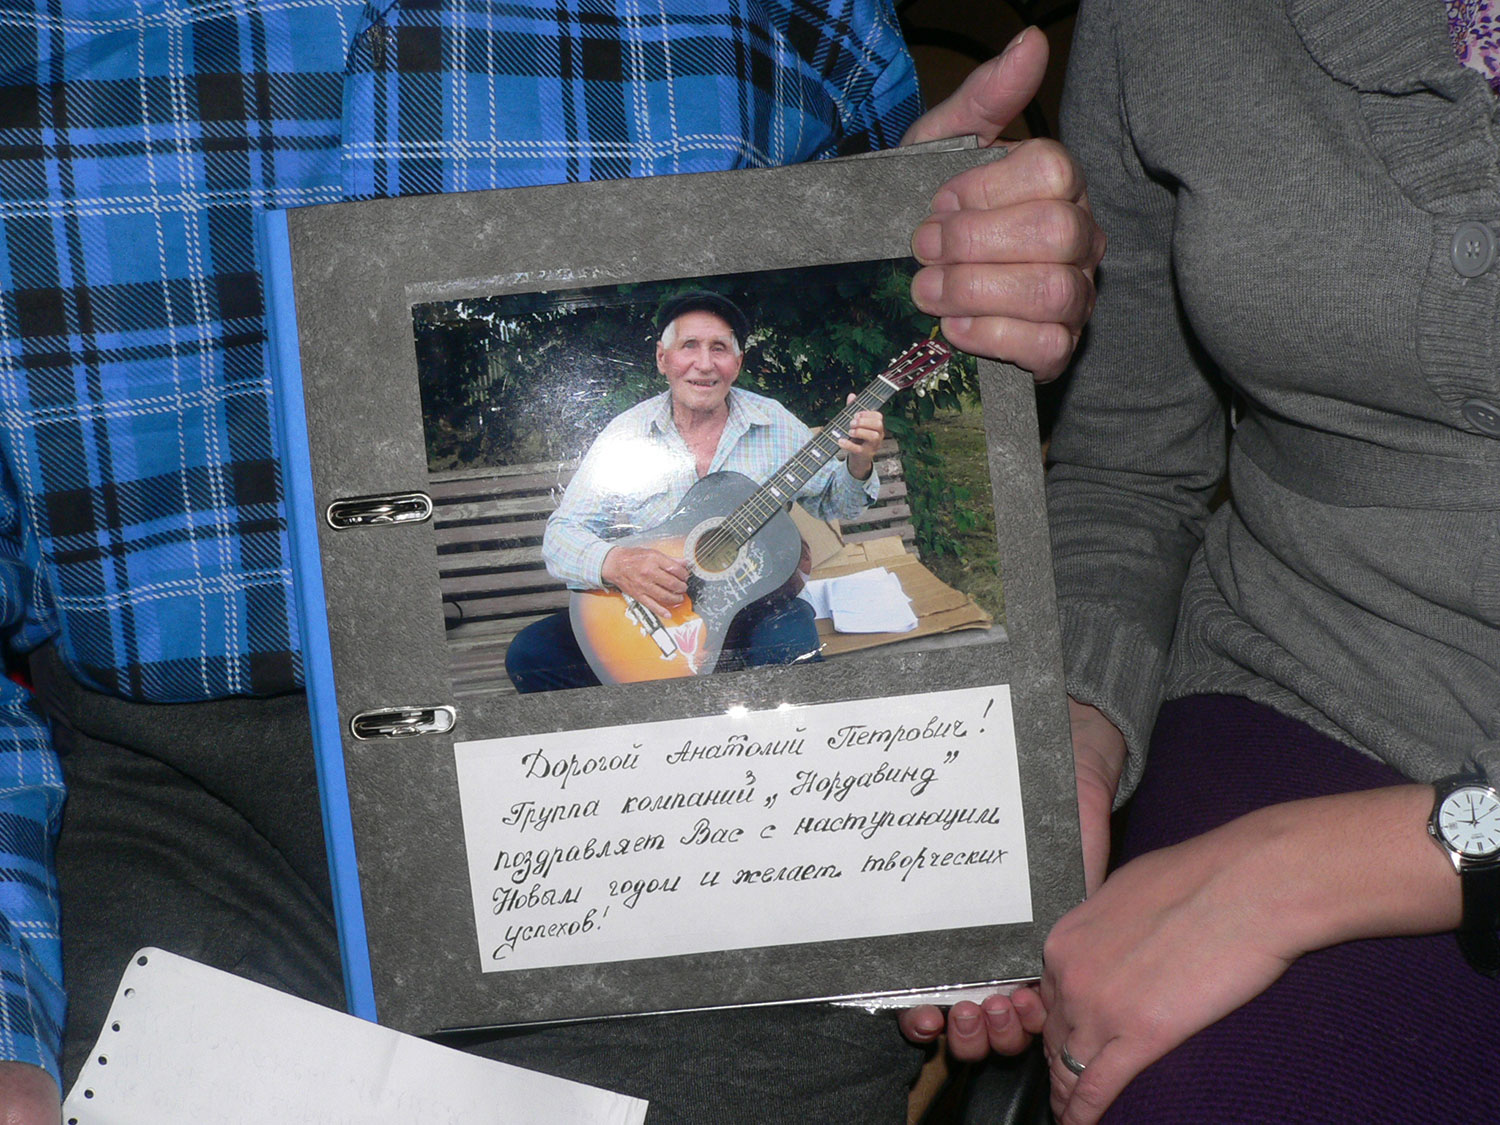 Дорогой Анатолий Петрович!
Группа компаний „Нордавинд”
поздравляет Вас с наступающим
Новым годом и желает творческих
успехов!